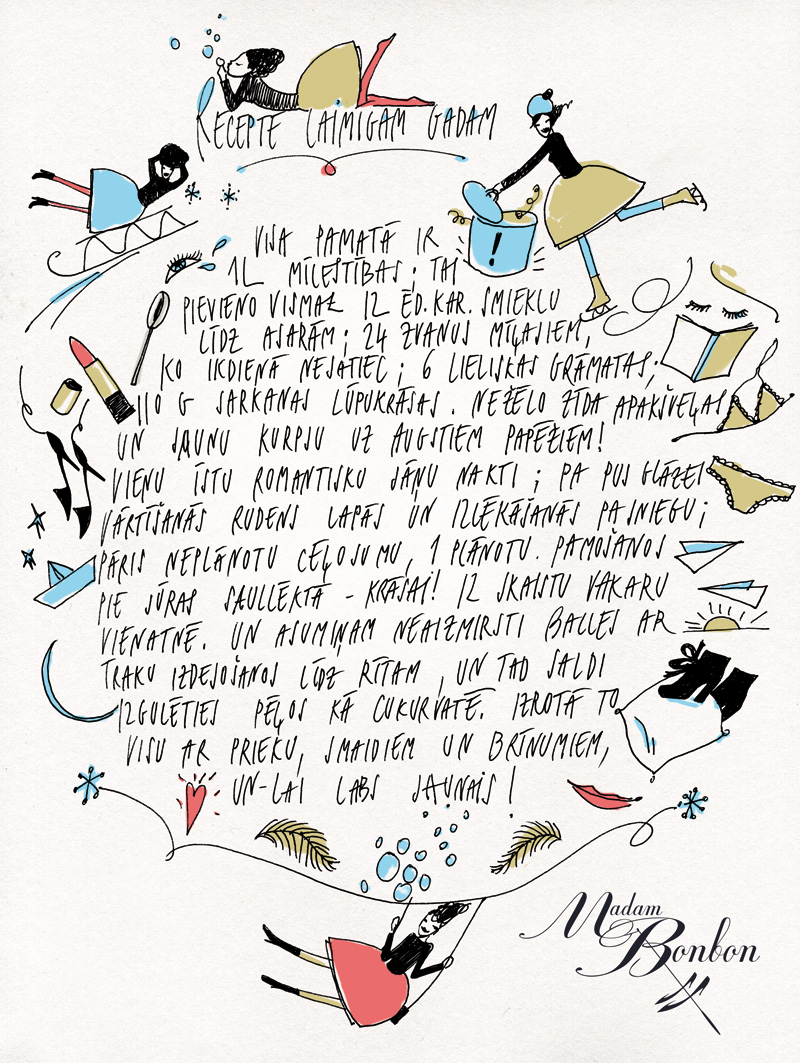 RECEPTE LAIMĪGAM GADAM
!
VISA PAMATĀ IR
1L MĪLESTĪBAS; TAI
PIEVIENO VISMAZ 12 ĒD.KAR. SMIEKLU
LĪDZ ASARĀM; 24 ZVANUS MĪĻAJIEM,
KO IKDIENĀ NESATIEC; 6 LIELISKAS GRĀMATAS;
110 G SARKANAS LŪPUKRĀSAS. NEŽĒLO ZĪDA APAKŠVEĻAS
UN JAUNU KURPJU UZ AUGSTIEM PAPĒŽIEM!
VIENU ĪSTU ROMANTISKU JĀŅU NAKTI; PA PUS GLĀZEI
VĀRTĪŠANĀS RUDENS LAPĀS UN IZLĒKĀŠANĀS PA SNIEGU;
PĀRIS NEPLĀNOTU CEĻOJUMU, 1 PLĀNOTU. PAMOŠANOS
PIE JŪRAS SAULLĒKTĀ - KRĀSAI! 12 SKAISTU VAKARU
VIENATNĒ. UN ASUMIŅAM NEAIZMIRSTI BALLES AR
TRAKU IZDEJOŠANOS LĪDZ RĪTAM, UN TAD SALDI
IZGULĒTIES PĒĻOS KĀ CUKURVATĒ. IZROTĀ TO
VISU AR PRIEKU, SMAIDIEM UN BRĪNUMIEM,
UN-LAI LABS JAUNAIS!
Madam
Bonbon